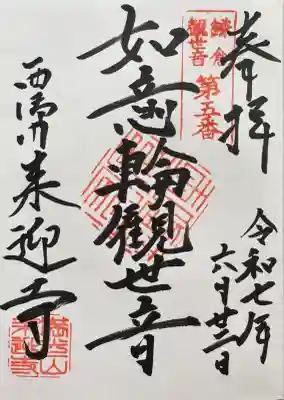 奉拝
鎌倉
観世音
第五番
令和七年
六月廿二日
如意輪観世音
西御門来迎寺
満光山
来迎寺